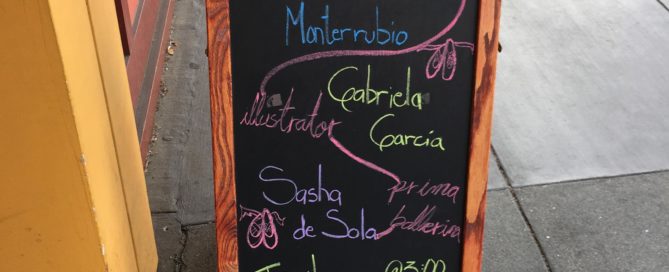 Monterrubio
Gabriela
illustrator
García
Sasha
prima
de Sola
ballerina
@3:00